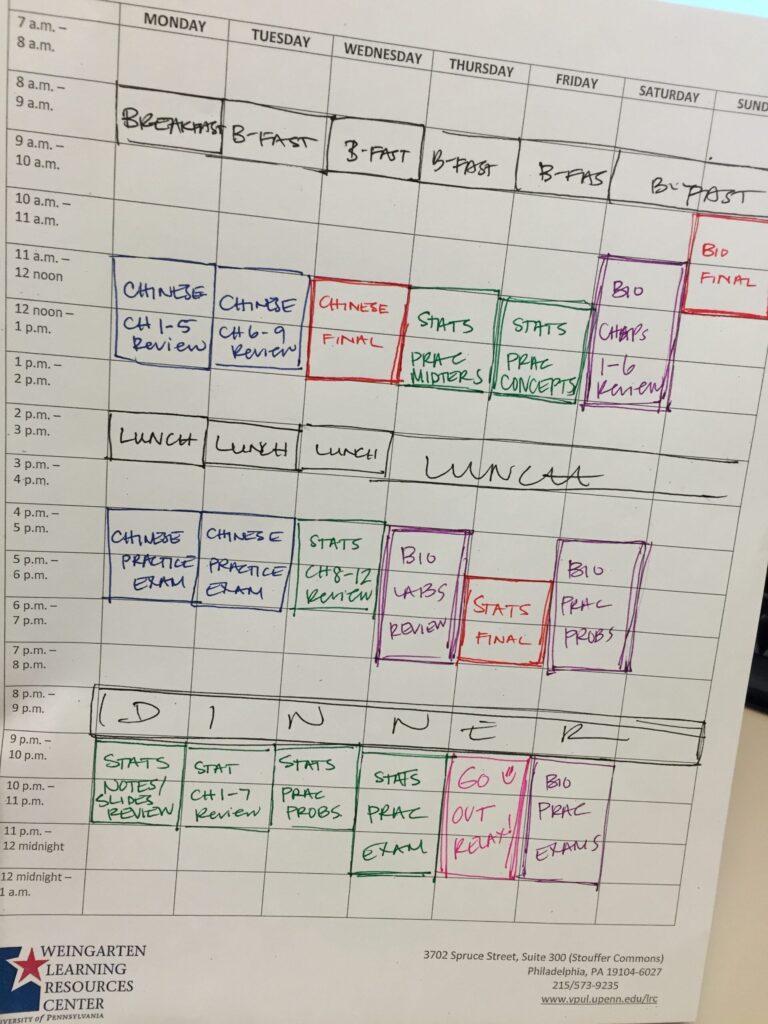 MONDAY
TUESDAY
WEDNESDAY
THURSDAY
FRIDAY
SATURDAY
SUND
7 a.m. –
8 a.m.
8 a.m. –
9 a.m.
BREAKFAST
B-FAST
B-FAST
B-FAST
B-FAS
B-FAST
9 a.m. –
10 a.m.
10 a.m. –
11 a.m.
BIO
FINAL
11 a.m. –
12 noon
12 noon –
1 p.m.
1 p.m. –
2 p.m.
CHINESE
CH 1-5
Review
CHINESE
CH 6-9
Review
CHINESE
FINAL
STATS
PRAC
MIDTERS
STATS
PRAC
CONCEPTS
BIO
CHAPS
1-6
Review
2 p.m. –
3 p.m.
LUNCH
LUNCH
LUNCH
LUNCH
3 p.m. –
4 p.m.
4 p.m. –
5 p.m.
5 p.m. –
6 p.m.
6 p.m. –
7 p.m.
7 p.m. –
8 p.m.
CHINESE
PRACTICE
EXAM
CHINESE
PRACTICE
EXAM
STATS
CH 8-12
Review
BIO
LABS
REVIEW
STATS
FINAL
BIO
PRAC
PROBS
8 p.m. –
9 p.m.
DINNER
9 p.m. –
10 p.m.
10 p.m. –
11 p.m.
11 p.m. –
12 midnight
12 midnight –
1 a.m.
STATS
NOTES/
SLIDES
REVIEW
STAT
CH 1-7
Review
STATS
PRAC
PROBS
STATS
PRAC
EXAM
GO
OUT
RELAX!
BIO
PRAC
EXAMS
WEINGARTEN
LEARNING
RESOURCES
CENTER
NIVERSITY of PENNSYLVANIA
3702 Spruce Street, Suite 300 (Stouffer Commons)
Philadelphia, PA 19104-6027
215/573-9235
www.vpul.upenn.edu/lrc